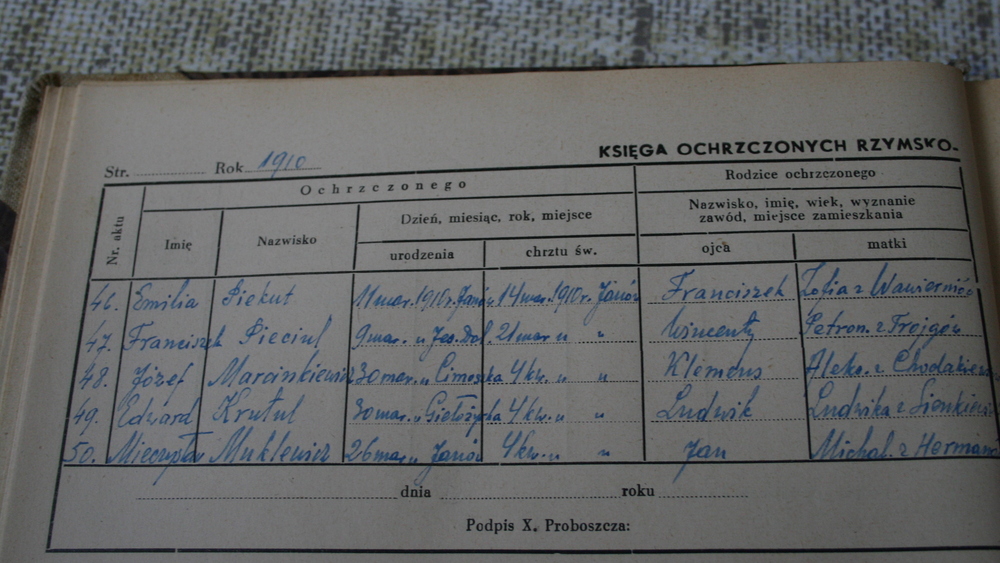 KSIĘGA OCHRZCZONYCH RZYMSKO-
Str. Rok 1910
Ochrzczonego Rodzice ochrzczonego
Nr. aktu Imię Nazwisko Dzień, miesiąc, rok, miejsce Nazwisko, imię, wiek, wyznanie
zawód, miejsce zamieszkania
urodzenia chrztu św. ojca matki
46. Emilia Piekut 11 mar. 1910 r. Janów 14 mar. 1910 r. Janów Franciszek Zofia z
47. Franciszek Pieciul 9 mar. " Jes. Dol. 21 mar " " Wincenty Petron. z Trojgów
48. Józef Marcinkiewicz 30 mar. " Cimoszka 4 kw. " " Klemens Aleks. z
49. Edward Krutul 30 mar. " 4 kw. " " Ludwik Ludwika z Sienkiewi
50. Mieczysław Muklewicz 26 mar. " Janów 4 kw. " " Jan Michal. z Herman
dnia roku
Podpis X. Proboszcza: